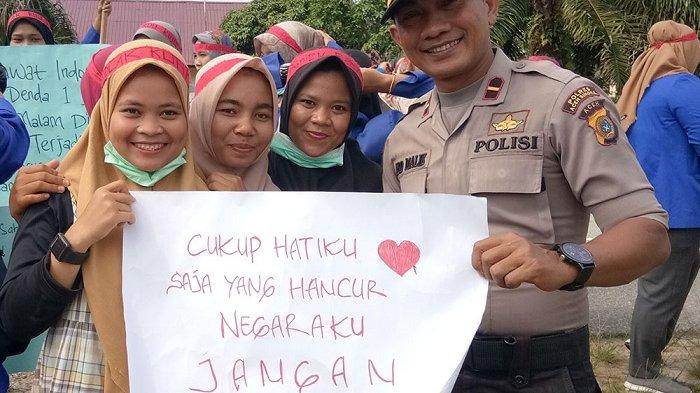 awat Indo
Denda 1
Malam D
Terjad
CUKUP HATIKU
SAJA YANG HANCUR
NEGARAKU
JANGAN
POLISI
ACEH